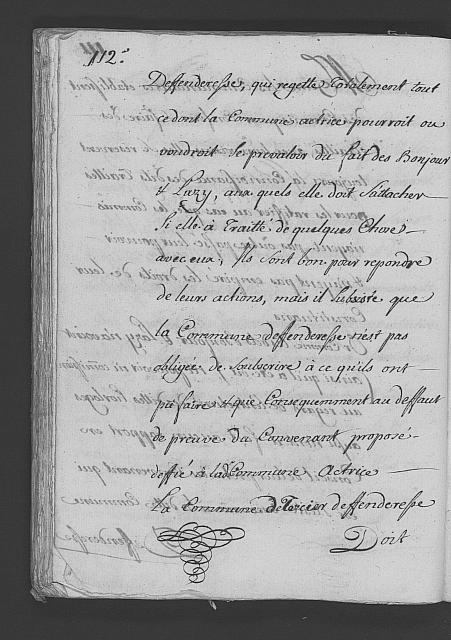 112.
Deffenderesse, qui regette Totalement tout
ce dont la Commune actrice pourroit ou
voudroit se prevaloir du fait des Bonjour
& Luzy, aux quels elle doit Sattacher
Si elle à Traitté de quelques Chose
avec eux, Ils sont bon pour repondre
de leurs actions, mais il Subsiste que
la Commune deffenderesse n'est pas
obligée de Souscrire à ce qu'ils ont
pû faire & que Consequemment au deffaut
de preuve du Convenant proposé
deffié à lad Commune Actrice
La Commune de deffenderesse
Doit